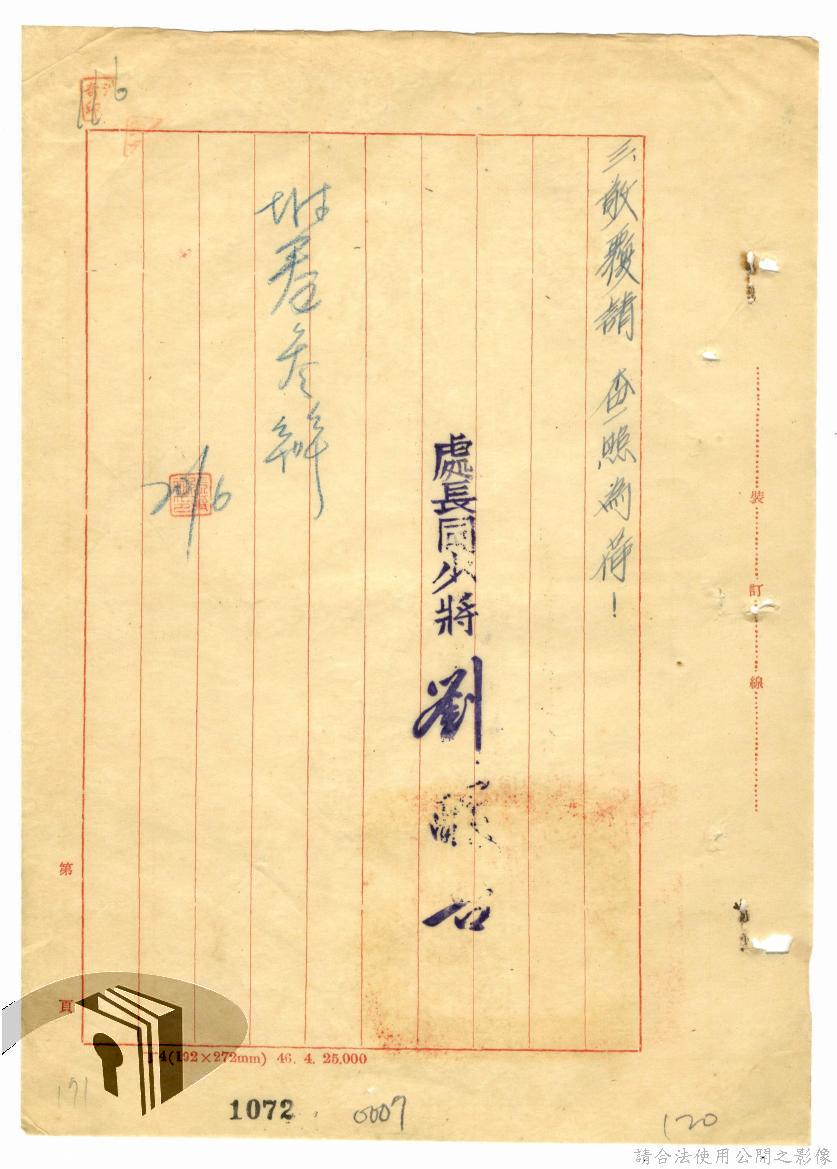 三、敬覆請　查照為荷！
處長同少將　劉　石
20/6
16
裝
訂
線
第
頁
4(192×272mm) 46. 4. 25,000
171
1072
0007
120
請合法使用公開之影像